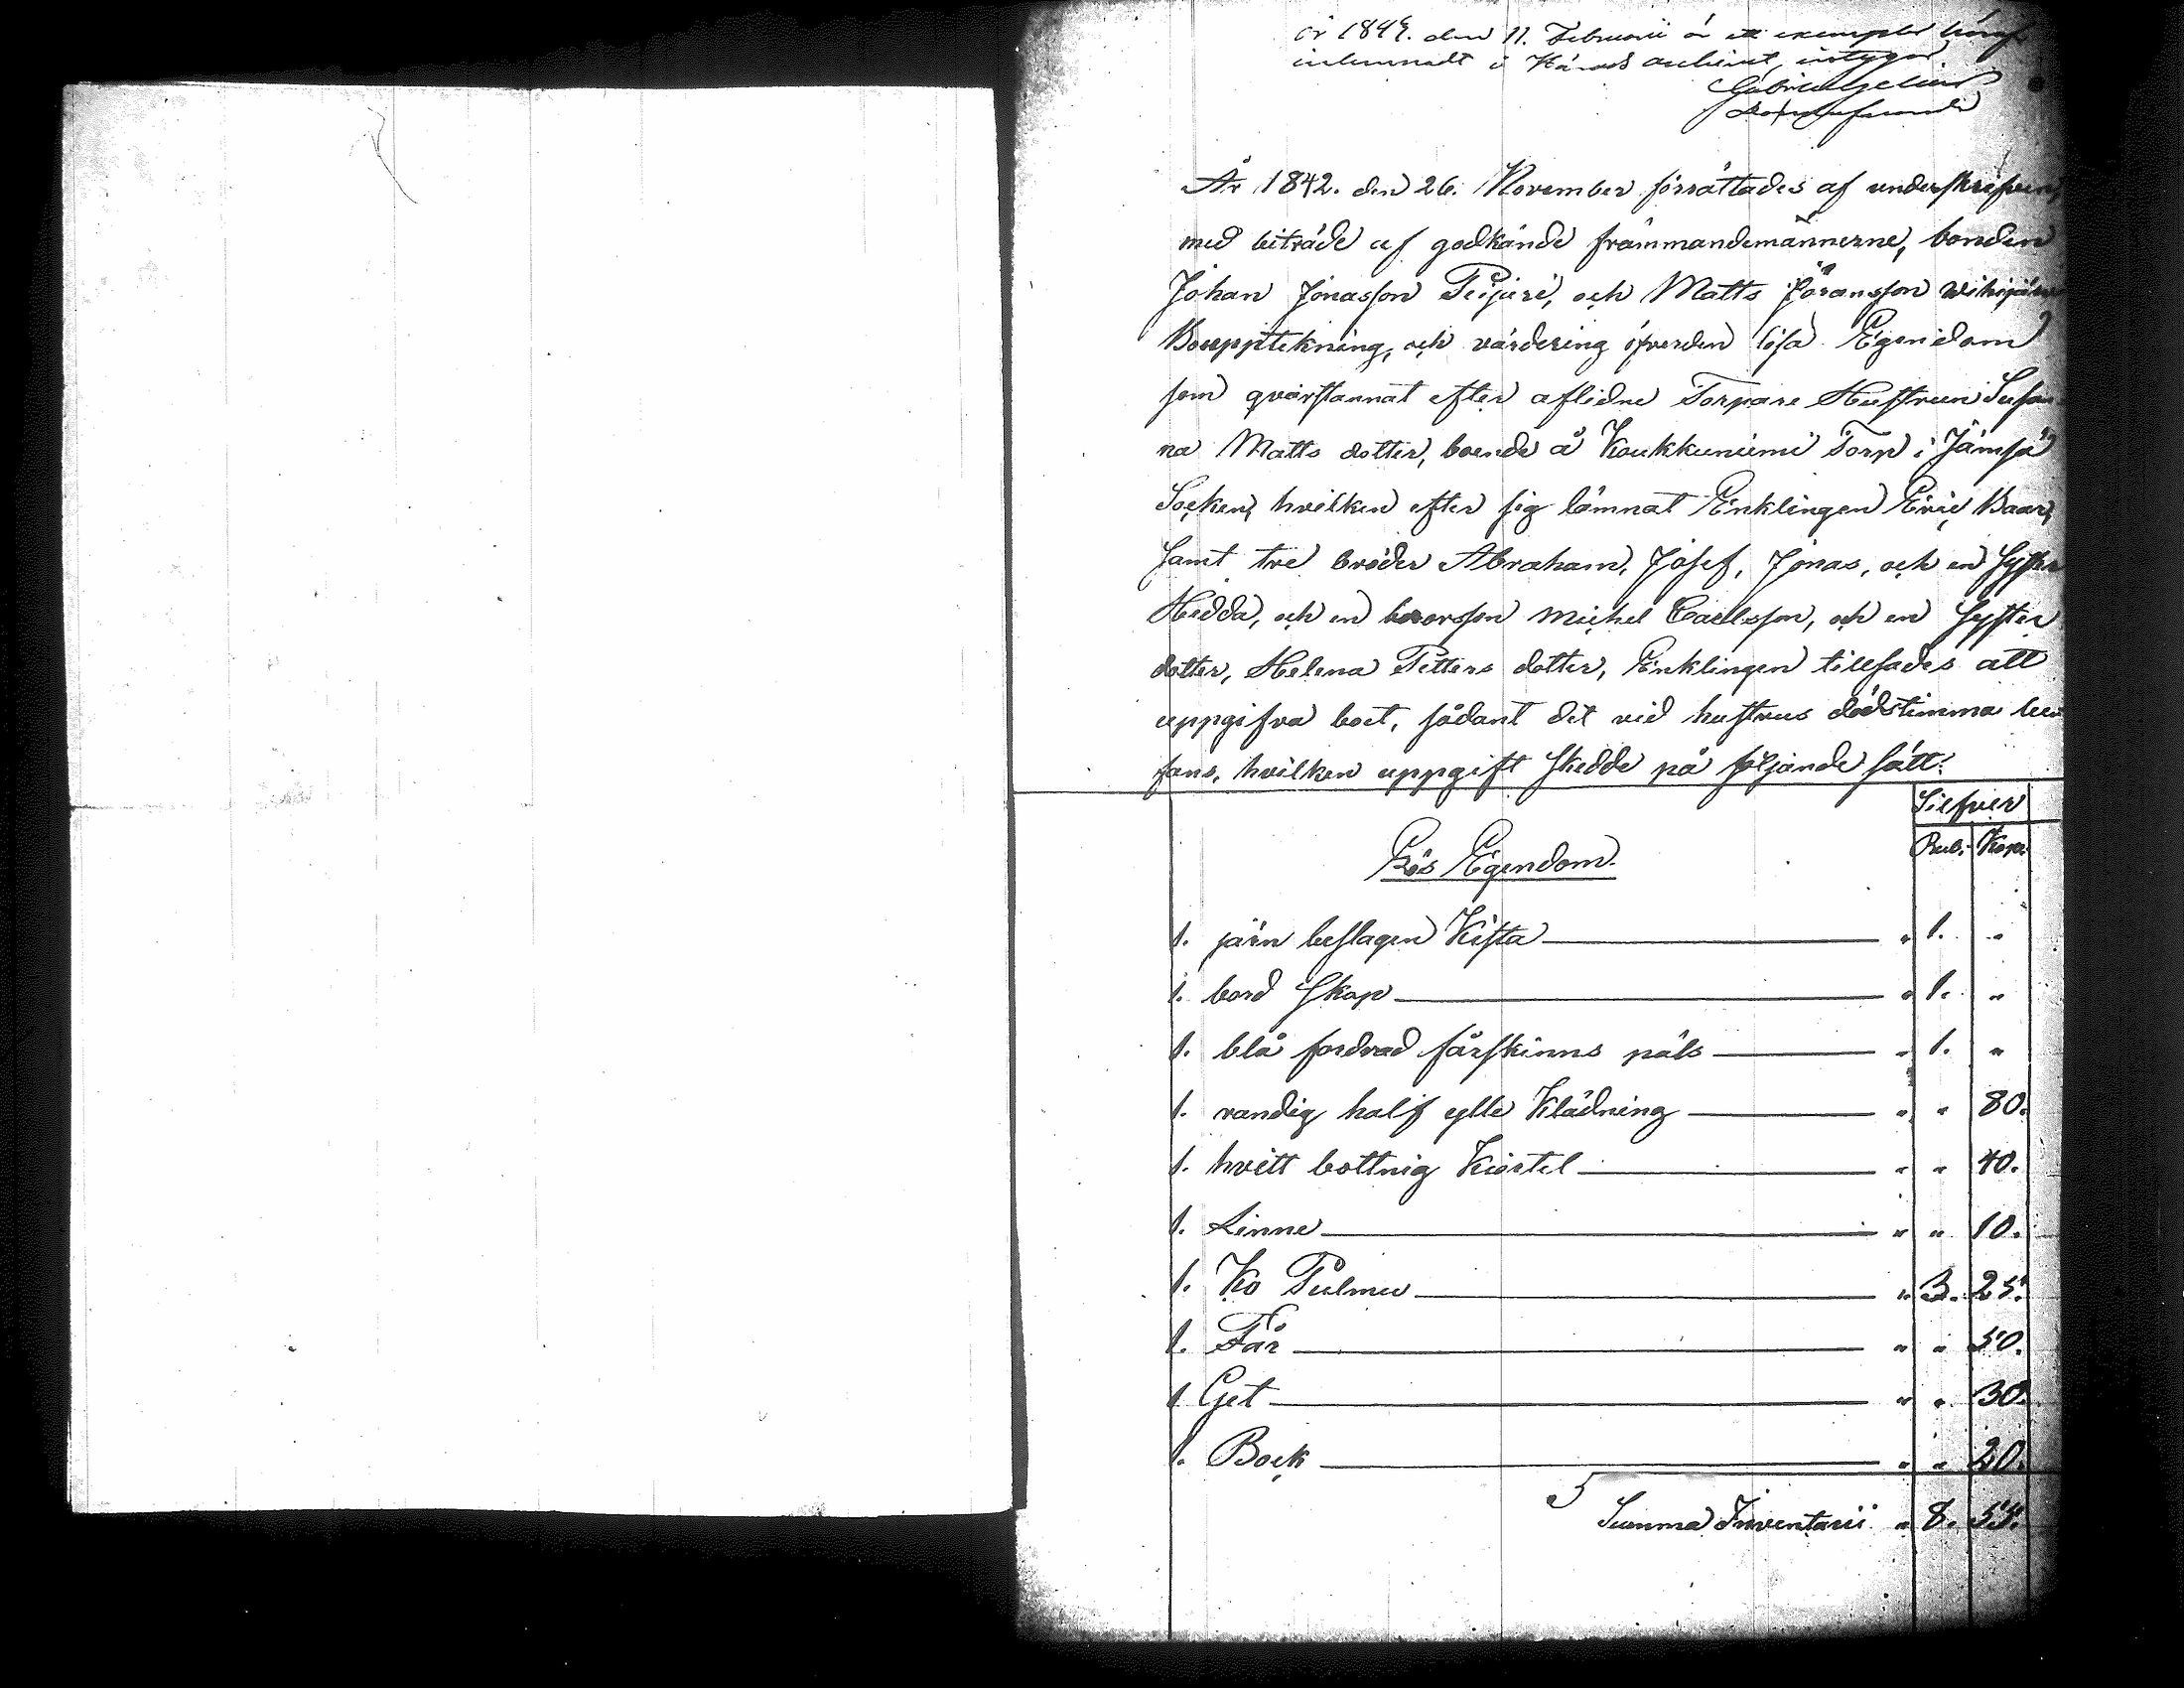 år 184 den 11. Februarii är ett exemplar häraf
inlemnadt i Härads archivet, intygar
Gabriel
År 1842. den 26. November förrättades af underskrefven,
med biträde af godkände främmandemännerne, bonden
Johan Jonasson Peijari, och Matts Jöransson
Bouppteckning, och värdering öfverden lösa Egendom
som qvarstannat efter aflidne Torpare Hustrun Susan-
na Matts dotter, boende å Koukkuniemi Torp i Jämsä
Socken, hvilken efter sig lämnat Enklingen Eric
samt tre bröder Abraham, Josef, Jonas, och en Syster
Hedda, och en brorsson Michel Carlsson, och en Syster
dotter, Helena Petters dotter, Enklingen tillsades att
uppgifva boet, sådant det vid hustrus dödstimma be
fans, hvilken uppgift skedde på följande sätt:
Silfver
Rub. Kop.
Lös Egendom.
1. järn beslagen Kista " 1. "
1. bord Skåp " 1. "
1. blå fordrad fårskinns päls " 1. "
1. randig half ylle Klädning " " 80.
1. hvitt bottnig Kiortel " " 40.
1. Linne " " 10.
1. Ko Pulmu " 3. 25.
1. Får " " 50.
1 Get " " 30.
1. Bock " " 20.
Summa Inventarii " 8. 55.